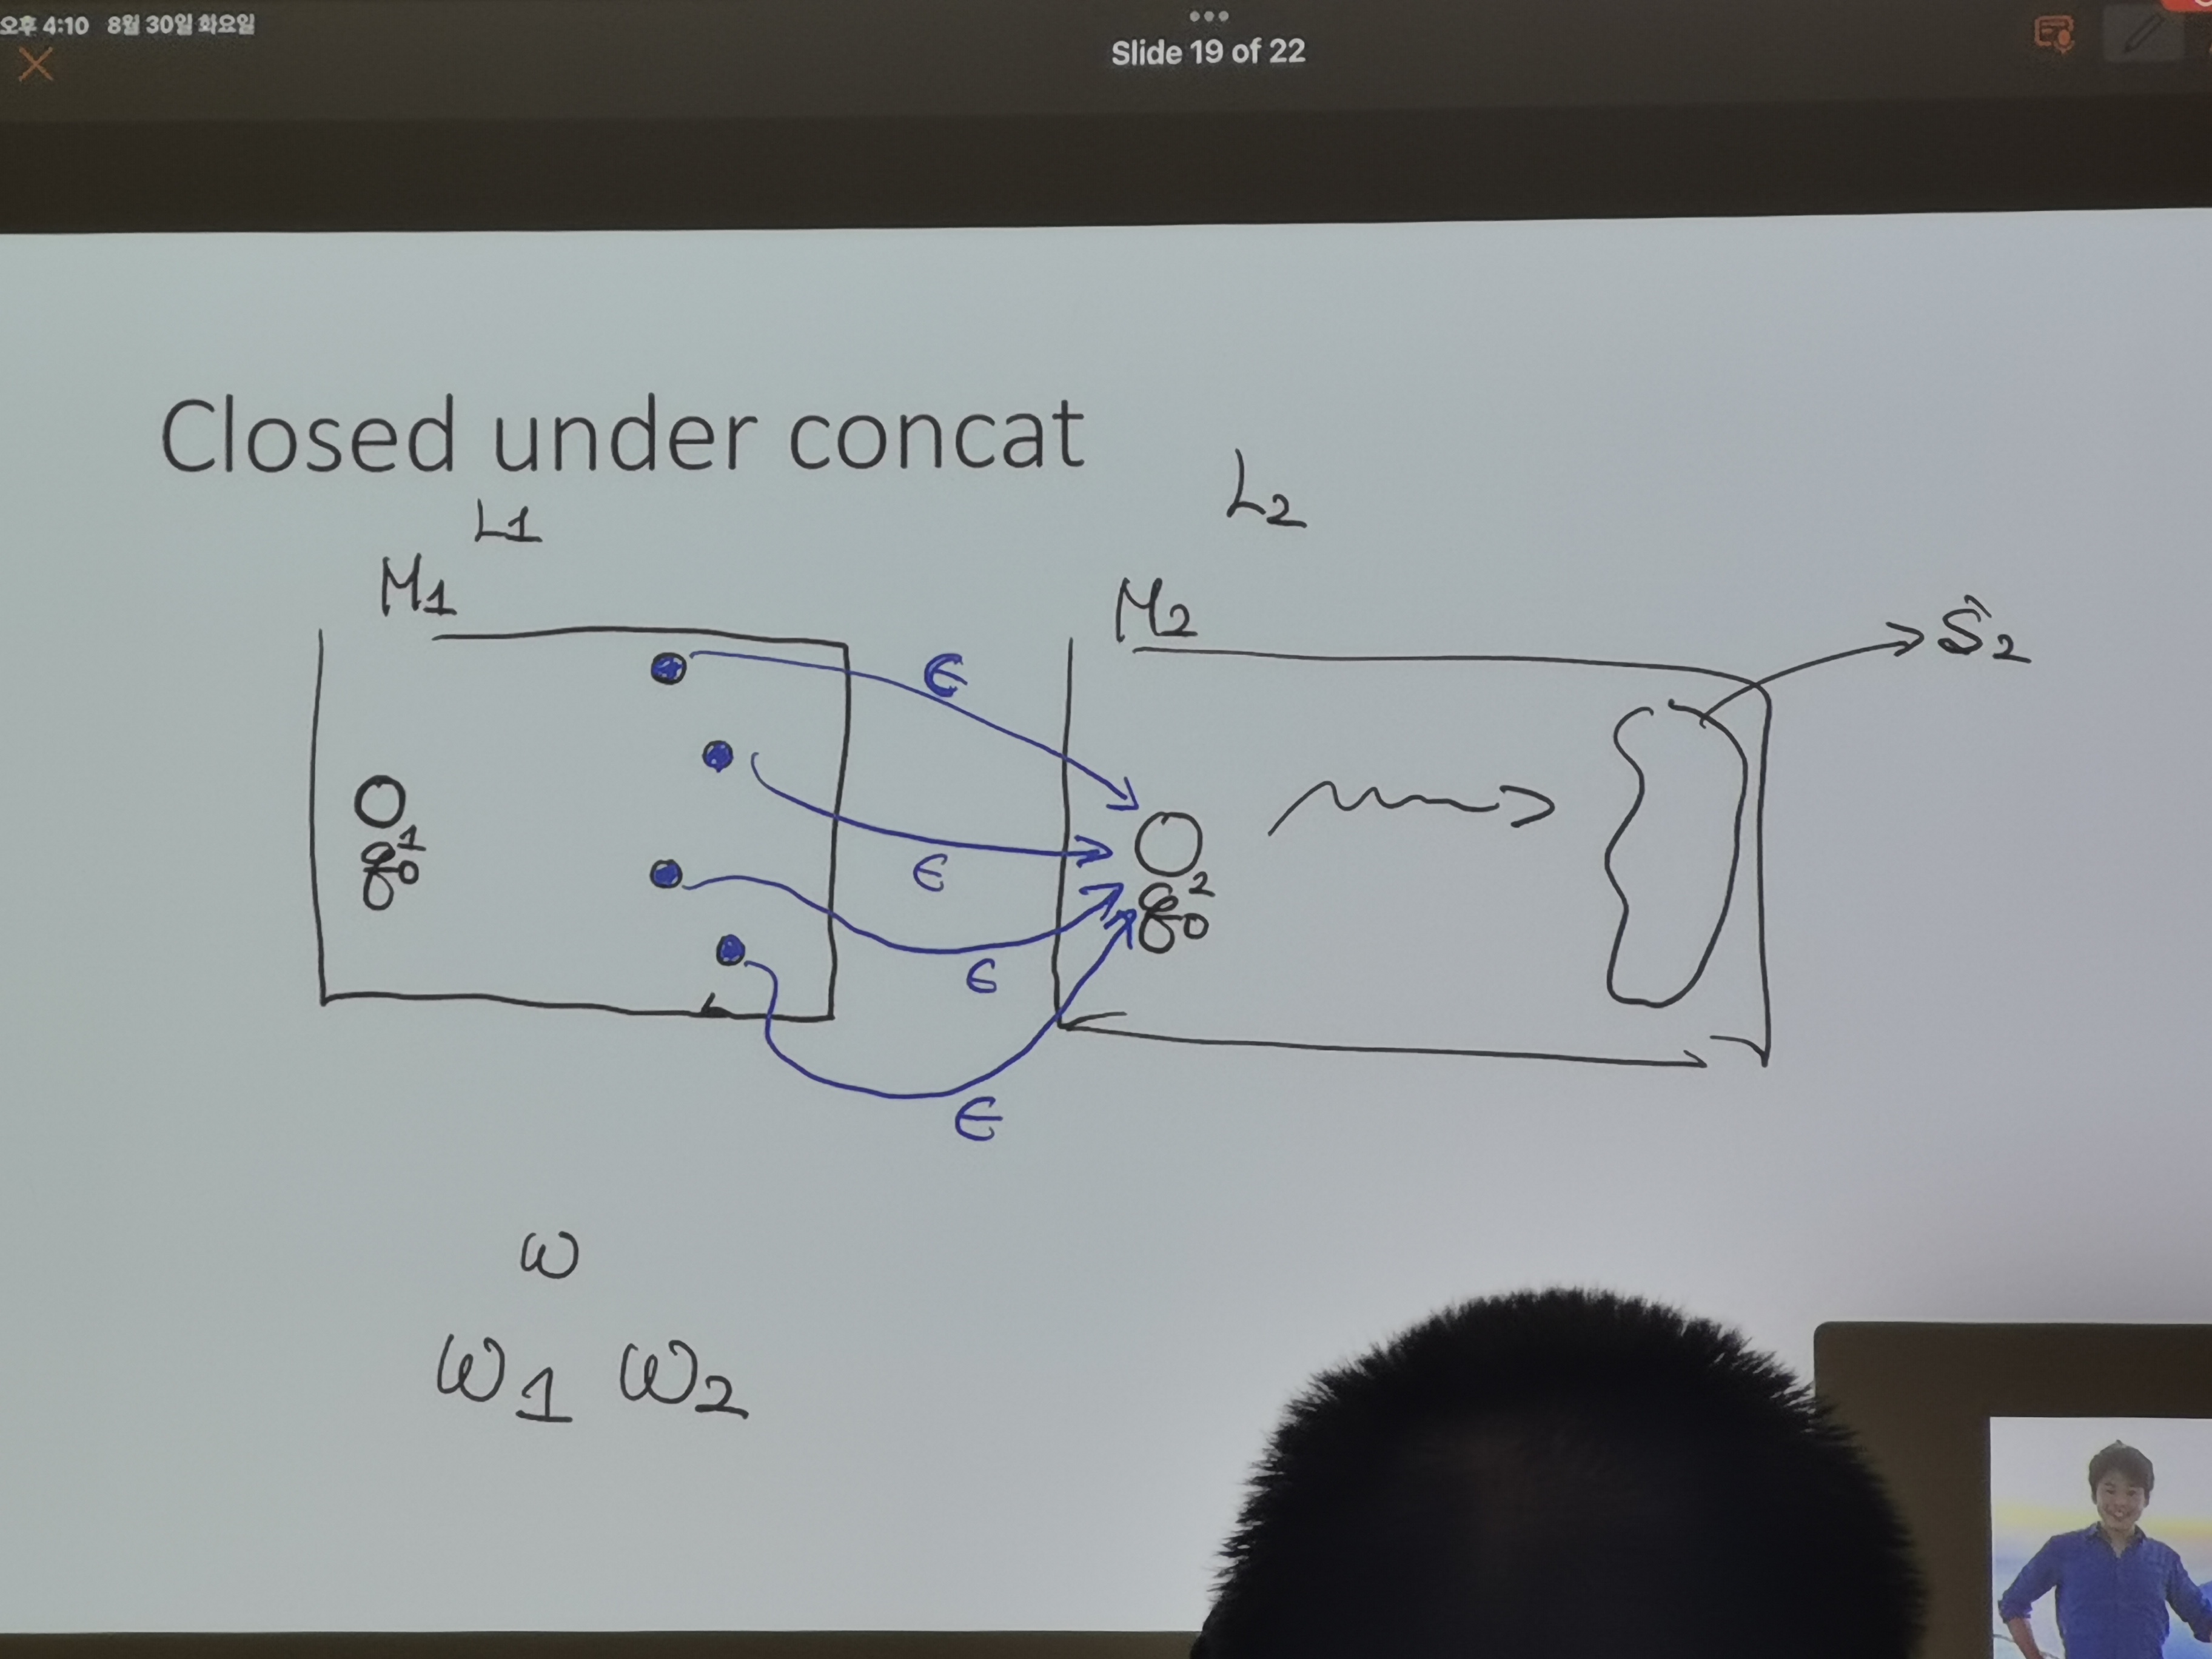 오후 4:10 8월 30일 화요일
Slide 19 of 22
Closed under concat
L1
L2
M1
M2
Ŝ2
ϵ
ϵ
ϵ
ϵ
q0^1
q0^2
ω
ω1 ω2